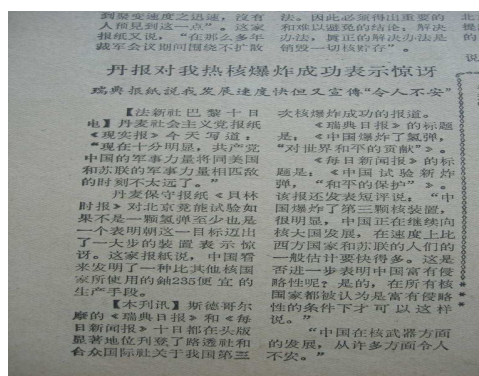 到聚变速度之迅速，没有
人预见到这一点”。这家
报纸又说，“在那么多年
裁军会议期间围绕不扩散
法。因此必须得出重要的
和难以避免的结论：解决
办法，真正的解决办法是
销毁一切核贮存”。
丹报对我热核爆炸成功表示惊讶
瑞典报纸说我发展速度快但又宣传“令人不安”
【法新社巴黎十日
电】丹麦社会主义党报纸
《现实报》今天写道：
“现在十分明显，共产党
中国的军事力量将同美国
和苏联的军事力量相匹敌
的时刻不太远了。”
丹麦保守报纸《贝林
时报》对北京竞能试验如
果不是一颗氢弹至少也是
一个表明朝这一目标迈出
了一大步的装置表示惊
讶。这家报纸说，中国看
来发明了一种比其他核国
家所使用的铀235便宜的
生产手段。
【本刊讯】斯德哥尔
摩的《瑞典日报》和《每
日新闻报》十日都在头版
显著地位刊登了路透社和
合众国际社关于我国第三
次核爆炸成功的报道。
《瑞典日报》的标题
是：《中国爆炸了氢弹，
“对世界和平的贡献”》。
《每日新闻报》的标
题是：《中国试验新炸
弹，“和平的保护”》。
该报还发表短评说：“中
国爆炸了第三颗核装置，
很明显，中国正在继续向
核大国发展，在速度上比
西方国家和苏联的人们的
一般估计要快得多。这是
否进一步表明中国富有侵
略性呢？是的，在所有核
国家都被认为是富有侵略
性的条件下才可以这样
说。”
“中国在核武器方面
的发展，从许多方面令人
不安。”